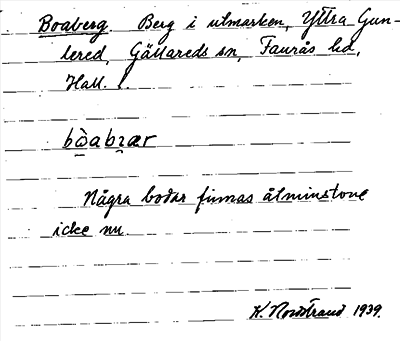 Boaberg. Berg i utmarken, Yttra Gun-
lered, Gällareds sn, Faurås hd,
Hall.
bòabrær
Några bodar finnas åtminstone
icke nu.
K. Nordstrand 1939.